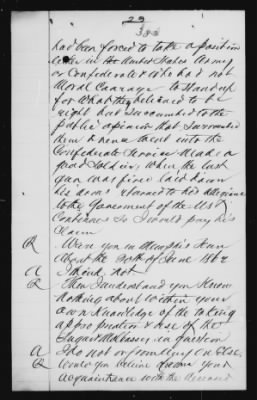 29
had been forced to take a position
either in the United States Army
or Confederate & who had not
Moral Courage to Stand up
for what they believed to be
right had succumbed to the
public opinion that surrounded
them & hence went into the
Confederate Service Made a
good Soldier, when the last
gun was fired laid down
his arms returned to his allegiance
to the Government of the US &
Continues so I would pay his
Claim
Q Were you in Memphis Tenn
about the 30th of June 1862
A I think not
Q Then I understand you Know
nothing about within your
own Knowledge of the taking
appropriation & use of the
Sugar & Molasses in question
A I do not or from any one Else
Q your
acquaintance with the deceased